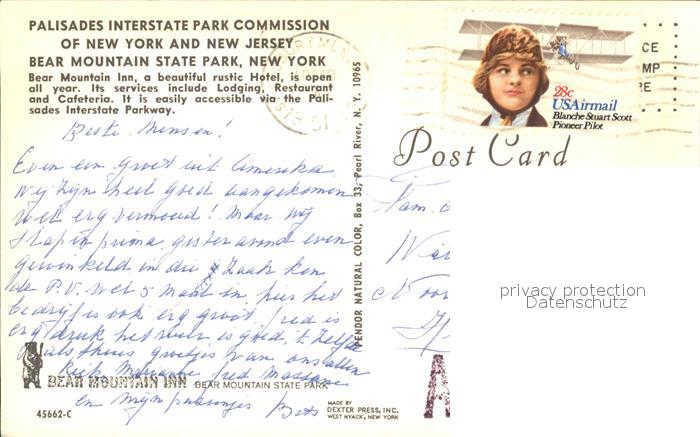 PALISADES INTERSTATE PARK COMMISSION
OF NEW YORK AND NEW JERSEY
BEAR MOUNTAIN STATE PARK, NEW YORK
Bear Mountain Inn, a beautiful rustic Hotel, is open
all year. Its services include Lodging, Restaurant
and Cafeteria. It is easily accessible via the Pali-
sades Interstate Parkway.
Beste mensen!
Even een groet uit Amerika
wij zijn heel goed aangekomen
wel erg vermoeid! maar wij
slapen prima, gisteravond even
gewinkeld in die zaak kan
de P.V. wel 5 maal in, hier het
bedrijf is ook erg groot, fred is
erg druk het weer is goed, 't zelfde
als thuis groetjes van ons allen
fred
en mijn Bets
BEAR MOUNTAIN INN BEAR MOUNTAIN STATE PARK
45662-C
MADE BY
DEXTER PRESS, INC.
WEST NYACK, NEW YORK
PENDOR NATURAL COLOR, Box 33, Pearl River, N. Y. 10965
28c
USAirmail
Blanche Stuart Scott
Pioneer Pilot
CE
MP
RE
Post Card
Fam.
privacy protection
Datenschutz